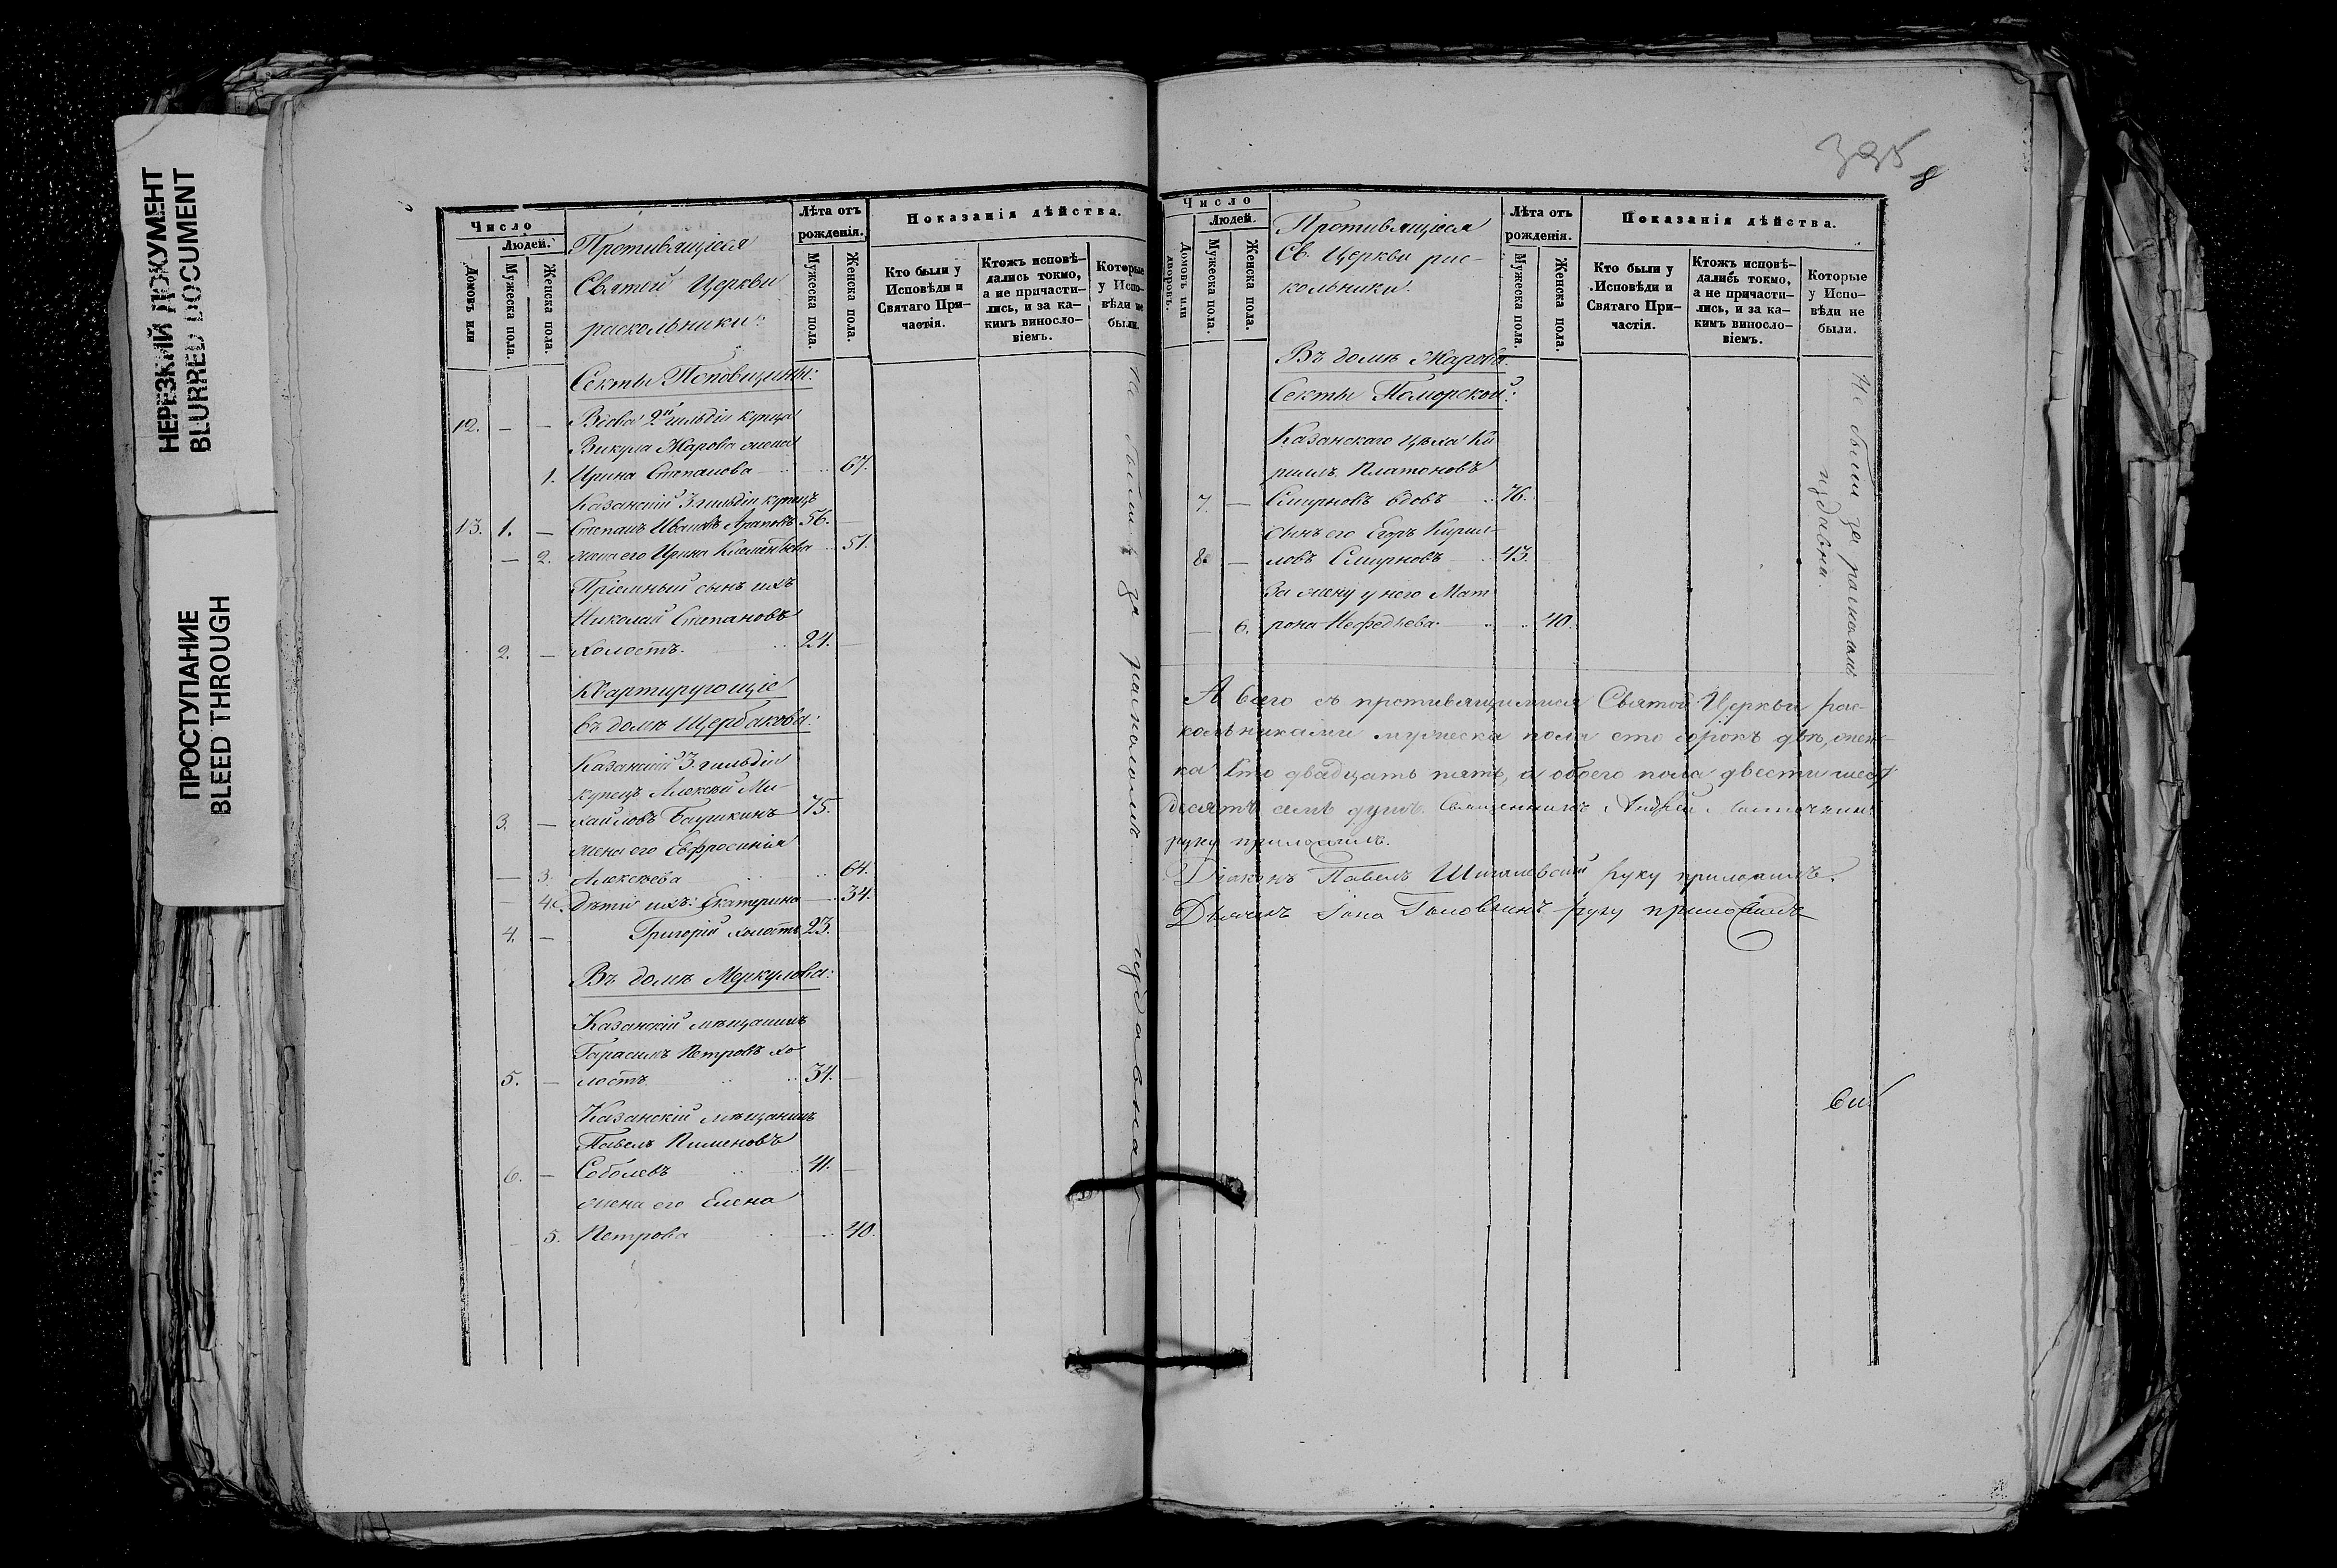 НЕРЕЗКИЙ ДОКУМЕНТ
BLURRED DOCUMENT
ПРОСТУПАНИЕ
BLEED THROUGH
Число
Людей.
Домовъ или
Мужеска пола.
Женска пола.
Противящіеся
Святой Церкви
раскольники:
Лѣта отъ
рожденія.
Мужеска пола.
Женска пола.
Показанія дѣйства.
Кто были у
Исповѣди и
Святаго При-
частія.
Ктожъ исповѣ-
дались токмо,
а не причасти-
лись, и за ка-
кимъ винносло-
віемъ.
Которые
у Испо-
вѣди не
были.
Секты Поповщины:
12. — — Вдова 2й гильдіи купца
Викула Жарова жена
1. Ирина Степанова 67.
Казанскій 3 гильдіи купецъ
13. 1. — Степанъ Ивановъ 56. —
— 2. жена его Ирина Климентьева 51.
Пріемный сынъ ихъ
Николай Степановъ
2. — холостъ. 24. —
Квартирующіе
въ домѣ Щербакова:
Казанскій 3 гильдіи
купецъ Алексѣй Ми-
3. — хайловъ 75.
жена его Евфросинія
— 3. Алексѣева 64.
— 4. Дѣти ихъ: Екатерина 34.
4. — Григорій холостъ 23.
Въ домѣ Меркулова:
Казанскій мѣщанинъ
Гарасимъ Петровъ хо
5. — лостъ 34. —
Казанскій мѣщанинъ
Павелъ Пименовъ
6. — Соболевъ 41. —
жена его Елена
5. Петрова 40.
Не были за расколомъ издавна
395
8
Число
Людей.
Домовъ или
дворовъ.
Мужеска пола.
Женска пола.
Противящіеся
Св. Церкви рас-
кольники.
Лѣта отъ
рожденія.
Мужеска пола.
Женска пола.
Показанія дѣйства.
Кто были у
Исповѣди и
Святаго При-
частія.
Ктожъ исповѣ-
дались токмо,
а не причасти-
лись, и за ка-
кимъ винносло-
віемъ.
Которые
у Испо-
вѣди не
были.
Въ домѣ Жарова.
Секты Поморской:
Казанскаго цѣха Ки
риллъ Платоновъ
7. — Смирновъ вдовъ 76.
сынъ его Егоръ Кирил-
8. — ловъ Смирновъ 43.
За жену у него Мат
— 6. рона Нефедьева 40.
Не были за расколомъ
издавна.
А всего съ противящимися Святой Церкви рас-
кольниками мужеска пола сто сорокъ два, жен-
ска сто двадцать пять, а обоего пола двести шесть
десятъ семь душъ. Священникъ Андрей
руку приложилъ.
Діаконъ Павелъ руку приложилъ.
Дьячекъ Іона Головкинъ руку приложилъ